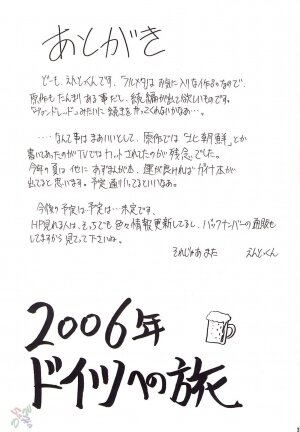 あとがき
どーも、えんとっくんです。フルメタはお気に入りな作品なので、
原作もたんまりある事だし、続編が出て欲しいものです。
みたいに続きをやってくれないかなぁ…。
....なんて事はまあいいとして、原作では「北朝鮮」とか
書いてあったのがTVではカットされてたのが残念でした。
今年の夏は他に あずまんが本、運が良ければガイナ本が
出てると思います。予定通りいってるといいなぁ。
今後の予定は予定は…未定です。
HP見れる人は、そっちでも色々情報更新してるし、バックナンバーの通販も
してますから見て下さいね。
それじゃあまた えんとっくん
2006年
ドイツへの旅